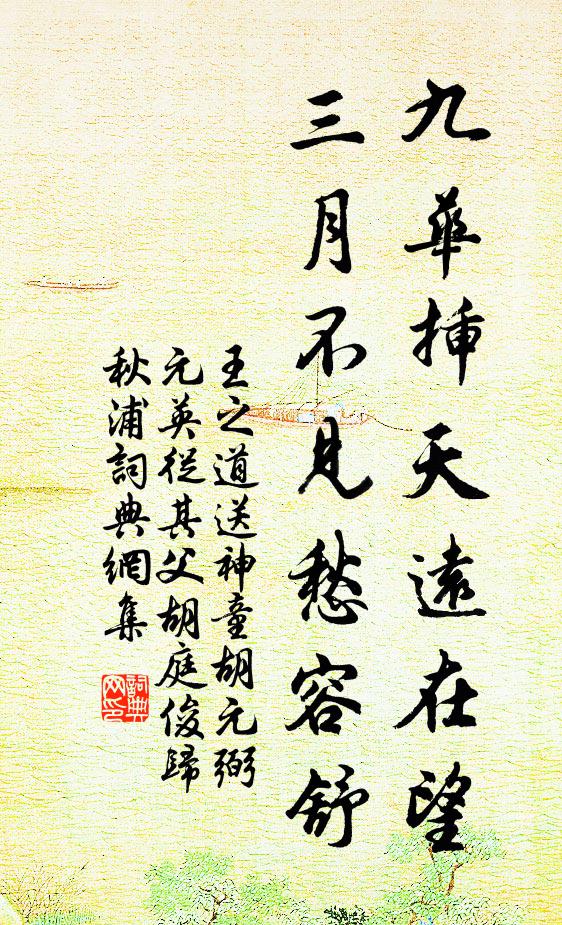 九華挿天遠在望
三月不見愁容舒
王之道送神童胡元弼
元英從其父胡庭俊歸
秋浦詞典網集
詞典
网印